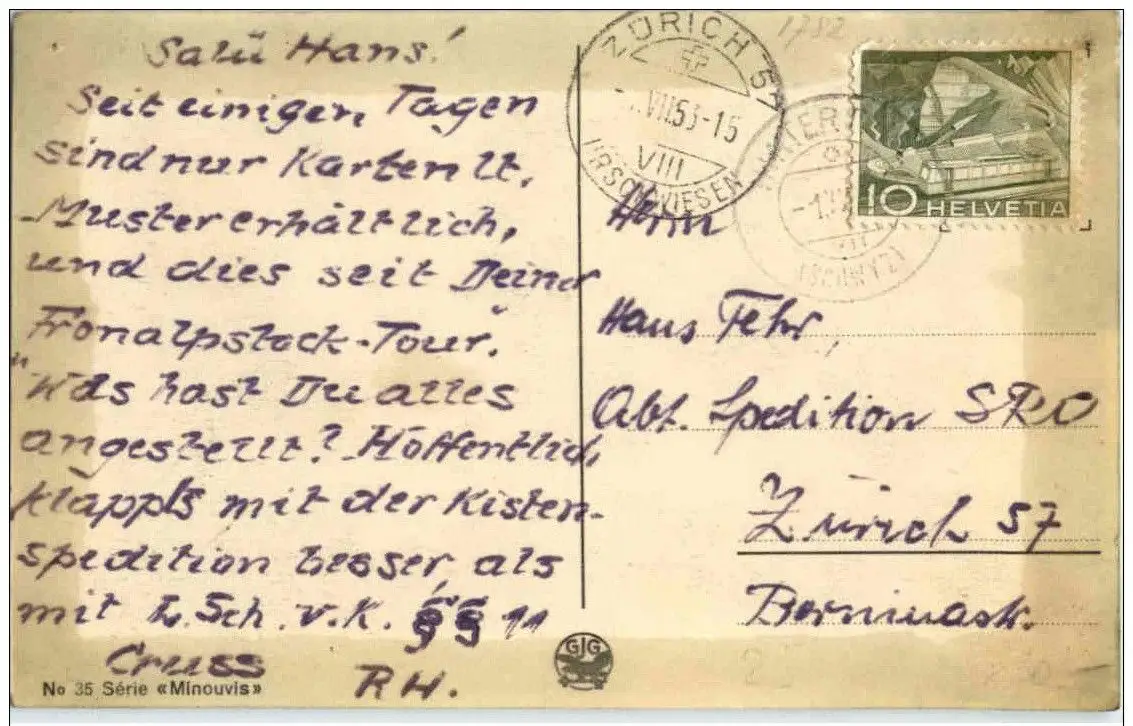 Salü Hans!
Seit einigen Tagen
sind nur Karten lt.
Muster erhältlich,
und dies seit Deiner
Fronalpstock-Tour.
Was hast Du alles
angestellt? Hoffentlich
klappts mit der Kisten-
spedition besser als
mit L. Sch. v. K. §§ 11
Cruss
RH.
No 35 Série «Minouvis»
GJG
1782
ZÜRICH 57
VII.53-15
VIII
IRSCHWIESEN
(SCHWYZ)
10 HELVETIA
Herrn
Hans Fehr
Abt. Spedition SRO
Zürich 57
Berninastr.